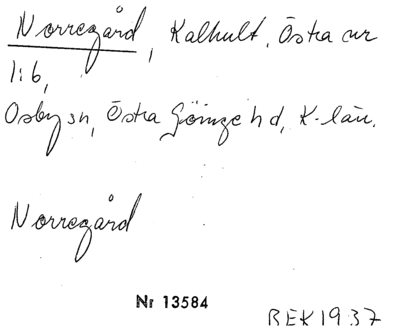 Norregård, Kalhult, Östra cur
1:6,
Osby sn, Östra Göinge hd, K-län.
Norregård
Nr 13584
BEK 1937